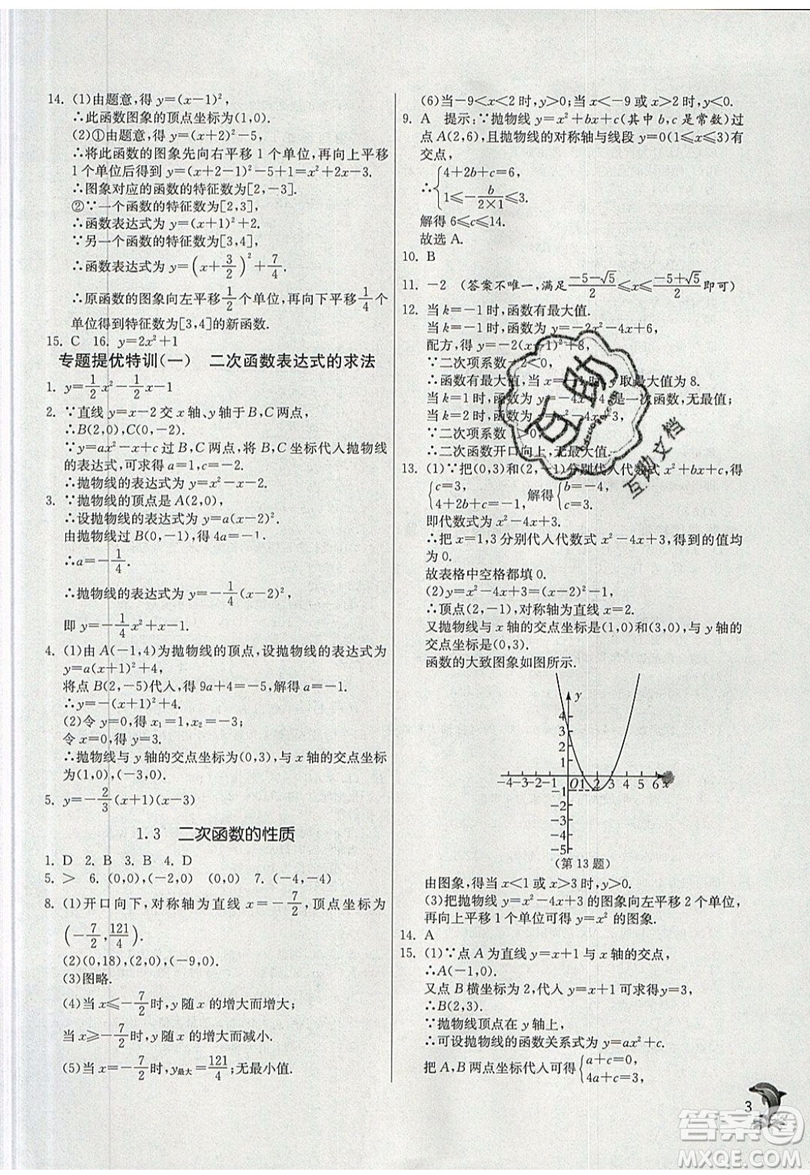 14. (1)由题意,得 y=(x-1)²,
∴此函数图象的顶点坐标为(1,0).
(2)①由题意,得 y=(x+2)²-5,
∴将此函数的图象先向右平移 1 个单位,再向上平移
1个单位后得到 y=(x+2-1)²-5+1=x²+2x-3.
∴图象对应的函数的特征数为[2,-3].
②∵一个函数的特征数为[2,3],
∴函数表达式为 y=(x+1)²+2.
∵另一个函数的特征数为[3,4],
∴函数表达式为 y=(x+3/2)²+7/4,
∴原函数的图象向左平移 1/2 个单位,再向下平移 1/4 个
单位得到特征数为[3,4]的新函数.
15. C 16. y=2x²+1
专题提优特训(一) 二次函数表达式的求法
1. y=1/2x²-1/2x-1
2. ∵直线 y=x-2交 x 轴、y 轴于 B,C 两点,
∴B(2,0),C(0,-2).
∵y=ax²-x+c 过 B,C 两点,将 B,C 坐标代入抛物线
的表达式,可求得 a=1,c=-2.
∴抛物线的表达式为 y=x²-x-2.
3. ∵抛物线的顶点是 A(2,0),
∴设抛物线的表达式为 y=a(x-2)².
由抛物线过 B(0,-1),得 4a=-1,
∴a=-1/4.
∴抛物线的表达式为 y=-1/4(x-2)²,
即 y=-1/4x²+x-1.
4. (1)由 A(-1,4)为抛物线的顶点,设抛物线的表达式为
y=a(x+1)²+4,
将点 B(2,-5)代入,得 9a+4=-5,解得 a=-1.
∴y=-(x+1)²+4.
(2)令 y=0,得 x₁=1,x₂=-3;
令 x=0,得 y=3.
∴抛物线与 y 轴的交点坐标为(0,3),与 x 轴的交点坐标
为(1,0),(-3,0).
5. y=-2/3(x+1)(x-3)
1.3 二次函数的性质
1. D 2. B 3. B 4. D
5. > 6. (0,0),(-2,0) (0,0) 7. (-4,-4)
8. (1)开口向下,对称轴为直线 x=-7/2,顶点坐标为
(-7/2,121/4).
(2)(0,18),(2,0),(-9,0)
(3)图略.
(4)当 x≤-7/2时,y随 x 的增大而增大;
当 x≥-7/2时,y 随 x 的增大而减小.
(5)当 x=-7/2时,y最大=121/4;无最小值.
(6)当-9<x<2 时,y>0;当 x<-9 或 x>2 时,y<0.
9. A 提示:∵抛物线 y=x²+bx+c(其中 b,c 是常数)过
点 A(2,6),且抛物线的对称轴与线段 y=0(1≤x≤3)有
交点,
∴{4+2b+c=6, 1≤-b/(2×1)≤3.
解得 6≤c≤14.
故选 A.
10. B
11. -2 (答案不唯一,满足 (-5-√5)/2≤x≤(-5+√5)/2 即可)
12. 当 k=-1 时,函数有最大值.
当 k=-1 时,函数 y=-2x²-4x+6,
配方,得 y=-2(x+1)²+8.
∵二次项系数-2<0,
∴函数有最大值,当 x=-1 时,y取最大值为 8.
当 k=1 时,函数 y=-4x+4 是一次函数,无最值;
当 k=2 时,函数 y=x²-4x+3,
∵二次项系数1>0,
∴函数图象开口向上,无最大值.
12. (1)∵把(0,3)和(2,-1)分别代入代数式 x²+bx+c,得
{c=3, 4+2b+c=-1, 解得{b=-4, c=3.
即代数式为 x²-4x+3.
∴把 x=1,3 分别代入代数式 x²-4x+3,得到的值均
为 0.
故表格中空格都填 0.
(2)y=x²-4x+3=(x-2)²-1.
∴顶点(2,-1),对称轴为直线 x=2.
又抛物线与 x 轴的交点坐标是(1,0)和(3,0),与 y 轴的
交点坐标为(0,3).
函数的大致图象如图所示.
y
4
3
2
1
-3-2-1 O 1 2 3 4 5 6 x
-1
-2
-3
-4
-5
(第 13 题)
由图象,得当 x<1 或 x>3 时,y>0.
(3)把抛物线 y=x²-4x+3 的图象向左平移 2 个单位,
再向上平移 1 个单位可得 y=x² 的图象.
14. A
15. (1)∵点 A 为直线 y=x+1 与 x 轴的交点,
∴A(-1,0).
又点 B 横坐标为 2,代入 y=x+1 可求得 y=3,
∴B(2,3).
∵抛物线顶点在 y 轴上,
∴可设抛物线的函数关系式为 y=ax²+c.
把 A,B 两点坐标代入可得{a+c=0, 4a+c=3,
3
互助
互助文档
答案圈
MXQE.COM